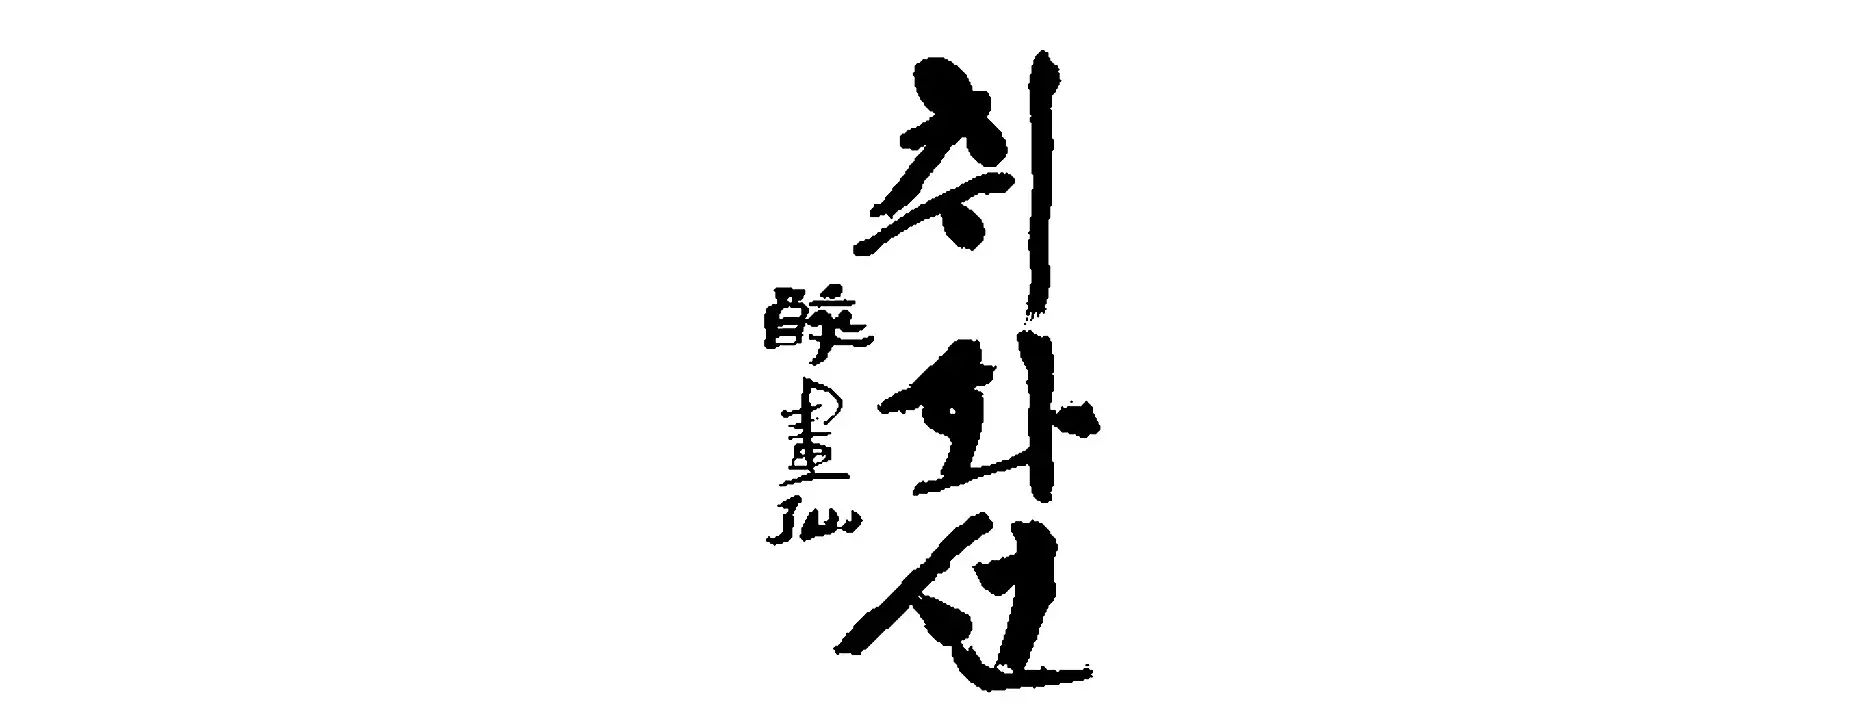 취화선
醉畫仙